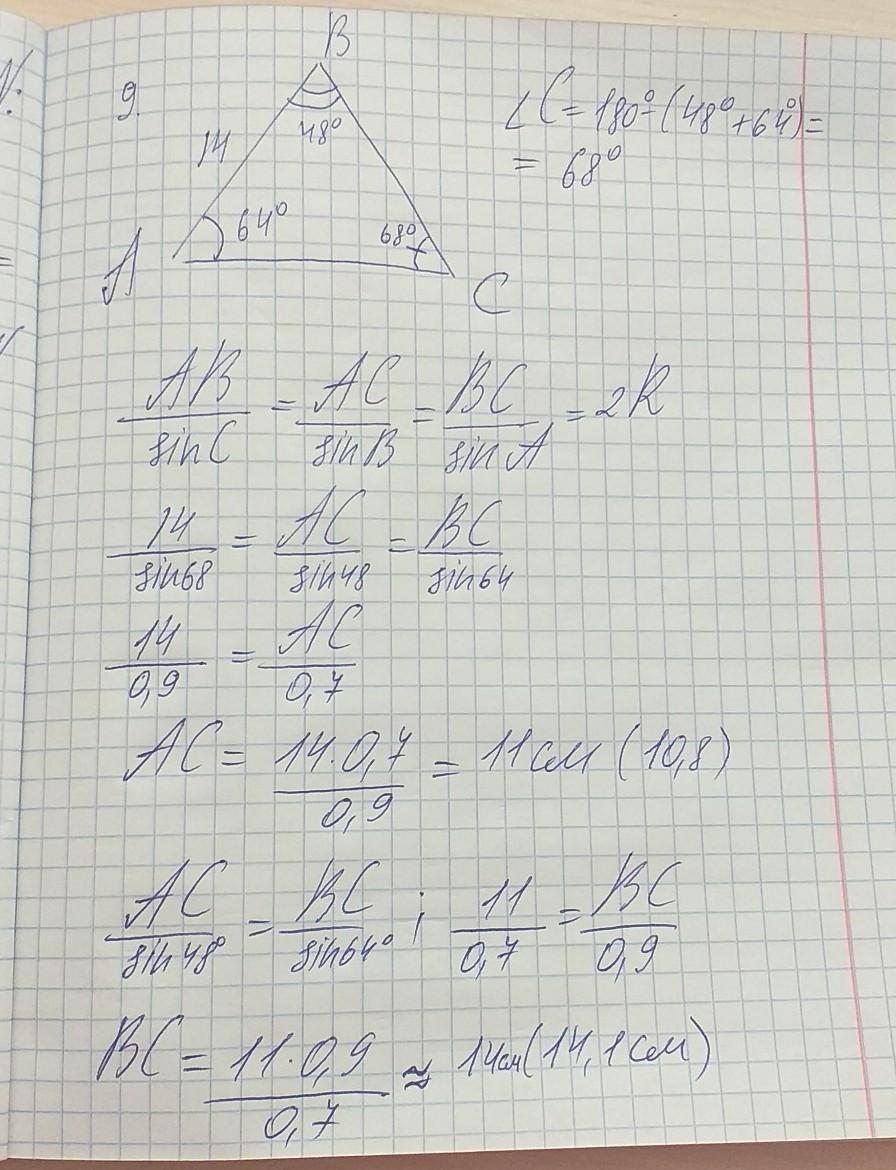 9.
B
14
48°
64°
68°
A
C
∠C = 180° - (48° + 64°) =
= 68°
AB/sinC = AC/sinB = BC/sinA = 2R
14/sin68 = AC/sin48 = BC/sin64
14/0,9 = AC/0,7
AC = 14·0,7/0,9 = 11см (10,8)
AC/sin48° = BC/sin64° ; 11/0,7 = BC/0,9
BC = 11·0,9/0,7 ≈ 14см (14,1см)